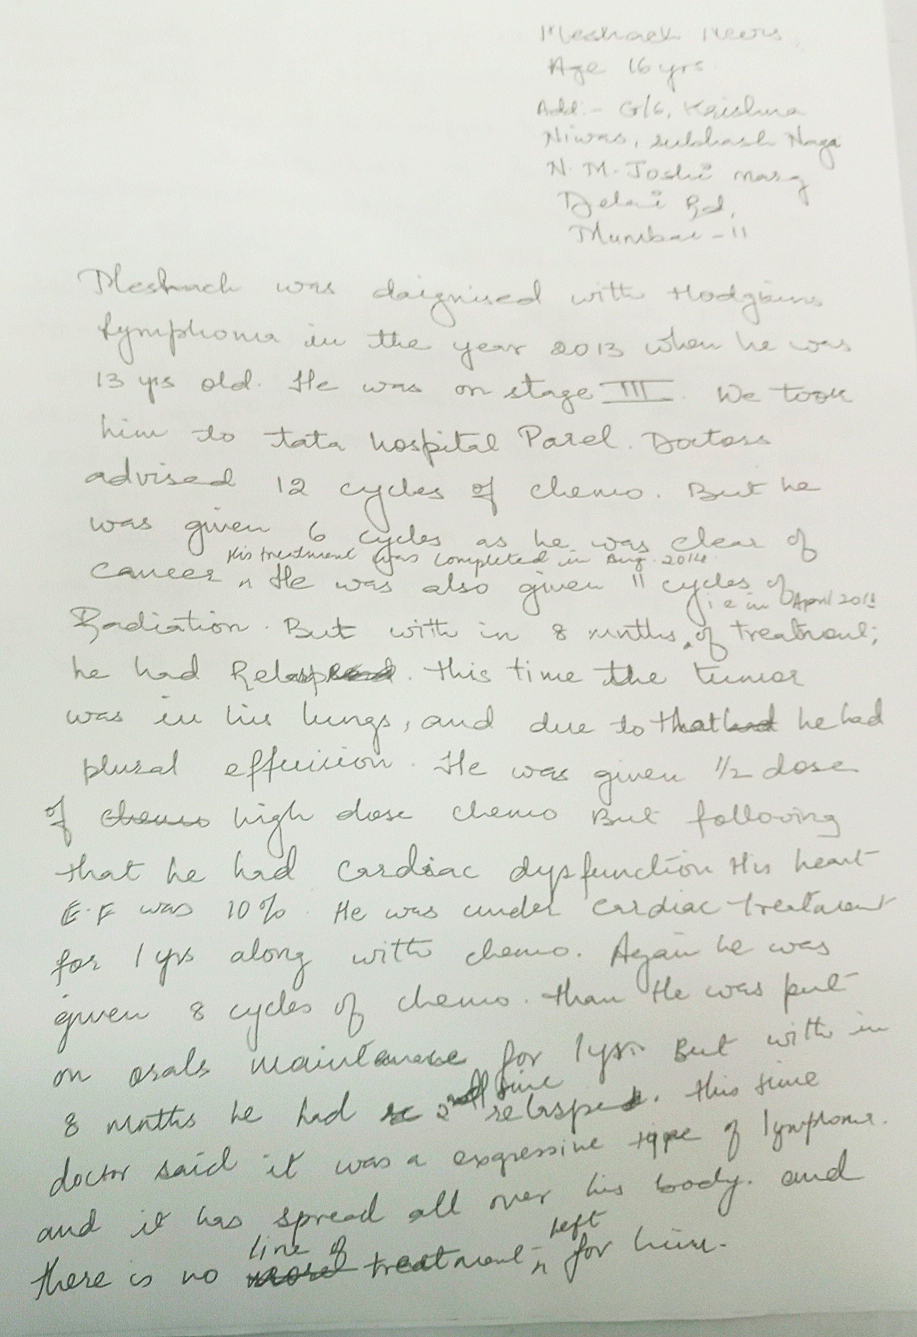 Meshach
Age 16 yrs
Add:- G/6, Krishna
Niwas, Subhash Naga
N. M. Joshi marg
Delai Rd,
Mumbai - 11
Meshach was daignised with Hodgkins
lymphoma in the year 2013 when he was
13 yrs old. He was on stage III. We took
him to tata hospital Parel. Doctors
advised 12 cycles of chemo. But he
was given 6 cycles as he was clear of
His treatment was completed in Aug. 2014
cancer He was also given 11 cycles of
i.e in April
Radiation. But with in 8 mnths of treatment;
he had Relapsed. This time the tumor
was in his lungs, and due to that he had
plural effuision. He was given 1/2 dose
of chemo high dose chemo But following
that he had cardiac dysfunction His heart
E.F was 10% He was under cardiac treatment
for 1 yrs along with chemo. Again he was
given 8 cycles of chemo. than He was put
on orals maintanace for 1 yr. But with in
8 mnths he had 2nd time relapsed. This time
doctor said it was a exgressive type of lymphoma.
and it has spread all over his body. and
line of left
there is no treatment for him.